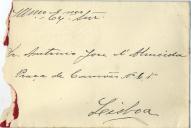 Illmo e Exmo Snr
Dr Antonio José d'Almeida
Praça de Camões nº
Lisboa